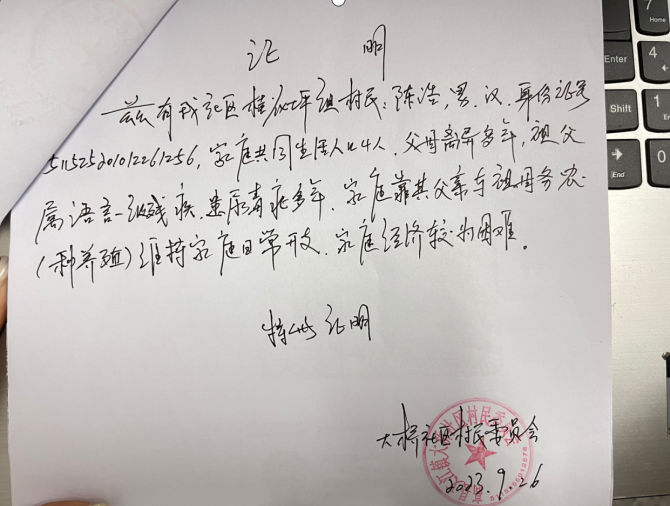 证 明
兹有我社区桂花坪组村民:陈浩,男,汉,身份证号
511525201012261256,家庭共同生活人口4人,父母离异多年,祖父
属语言一级残疾,患尿毒症多年,家庭靠其父亲与祖母务农
(种养殖)维持家庭日常开支,家庭经济较为困难。
特此证明
大桥社区村民委员会
2023.9.26
Enter
Shift
End
7
4
1
0